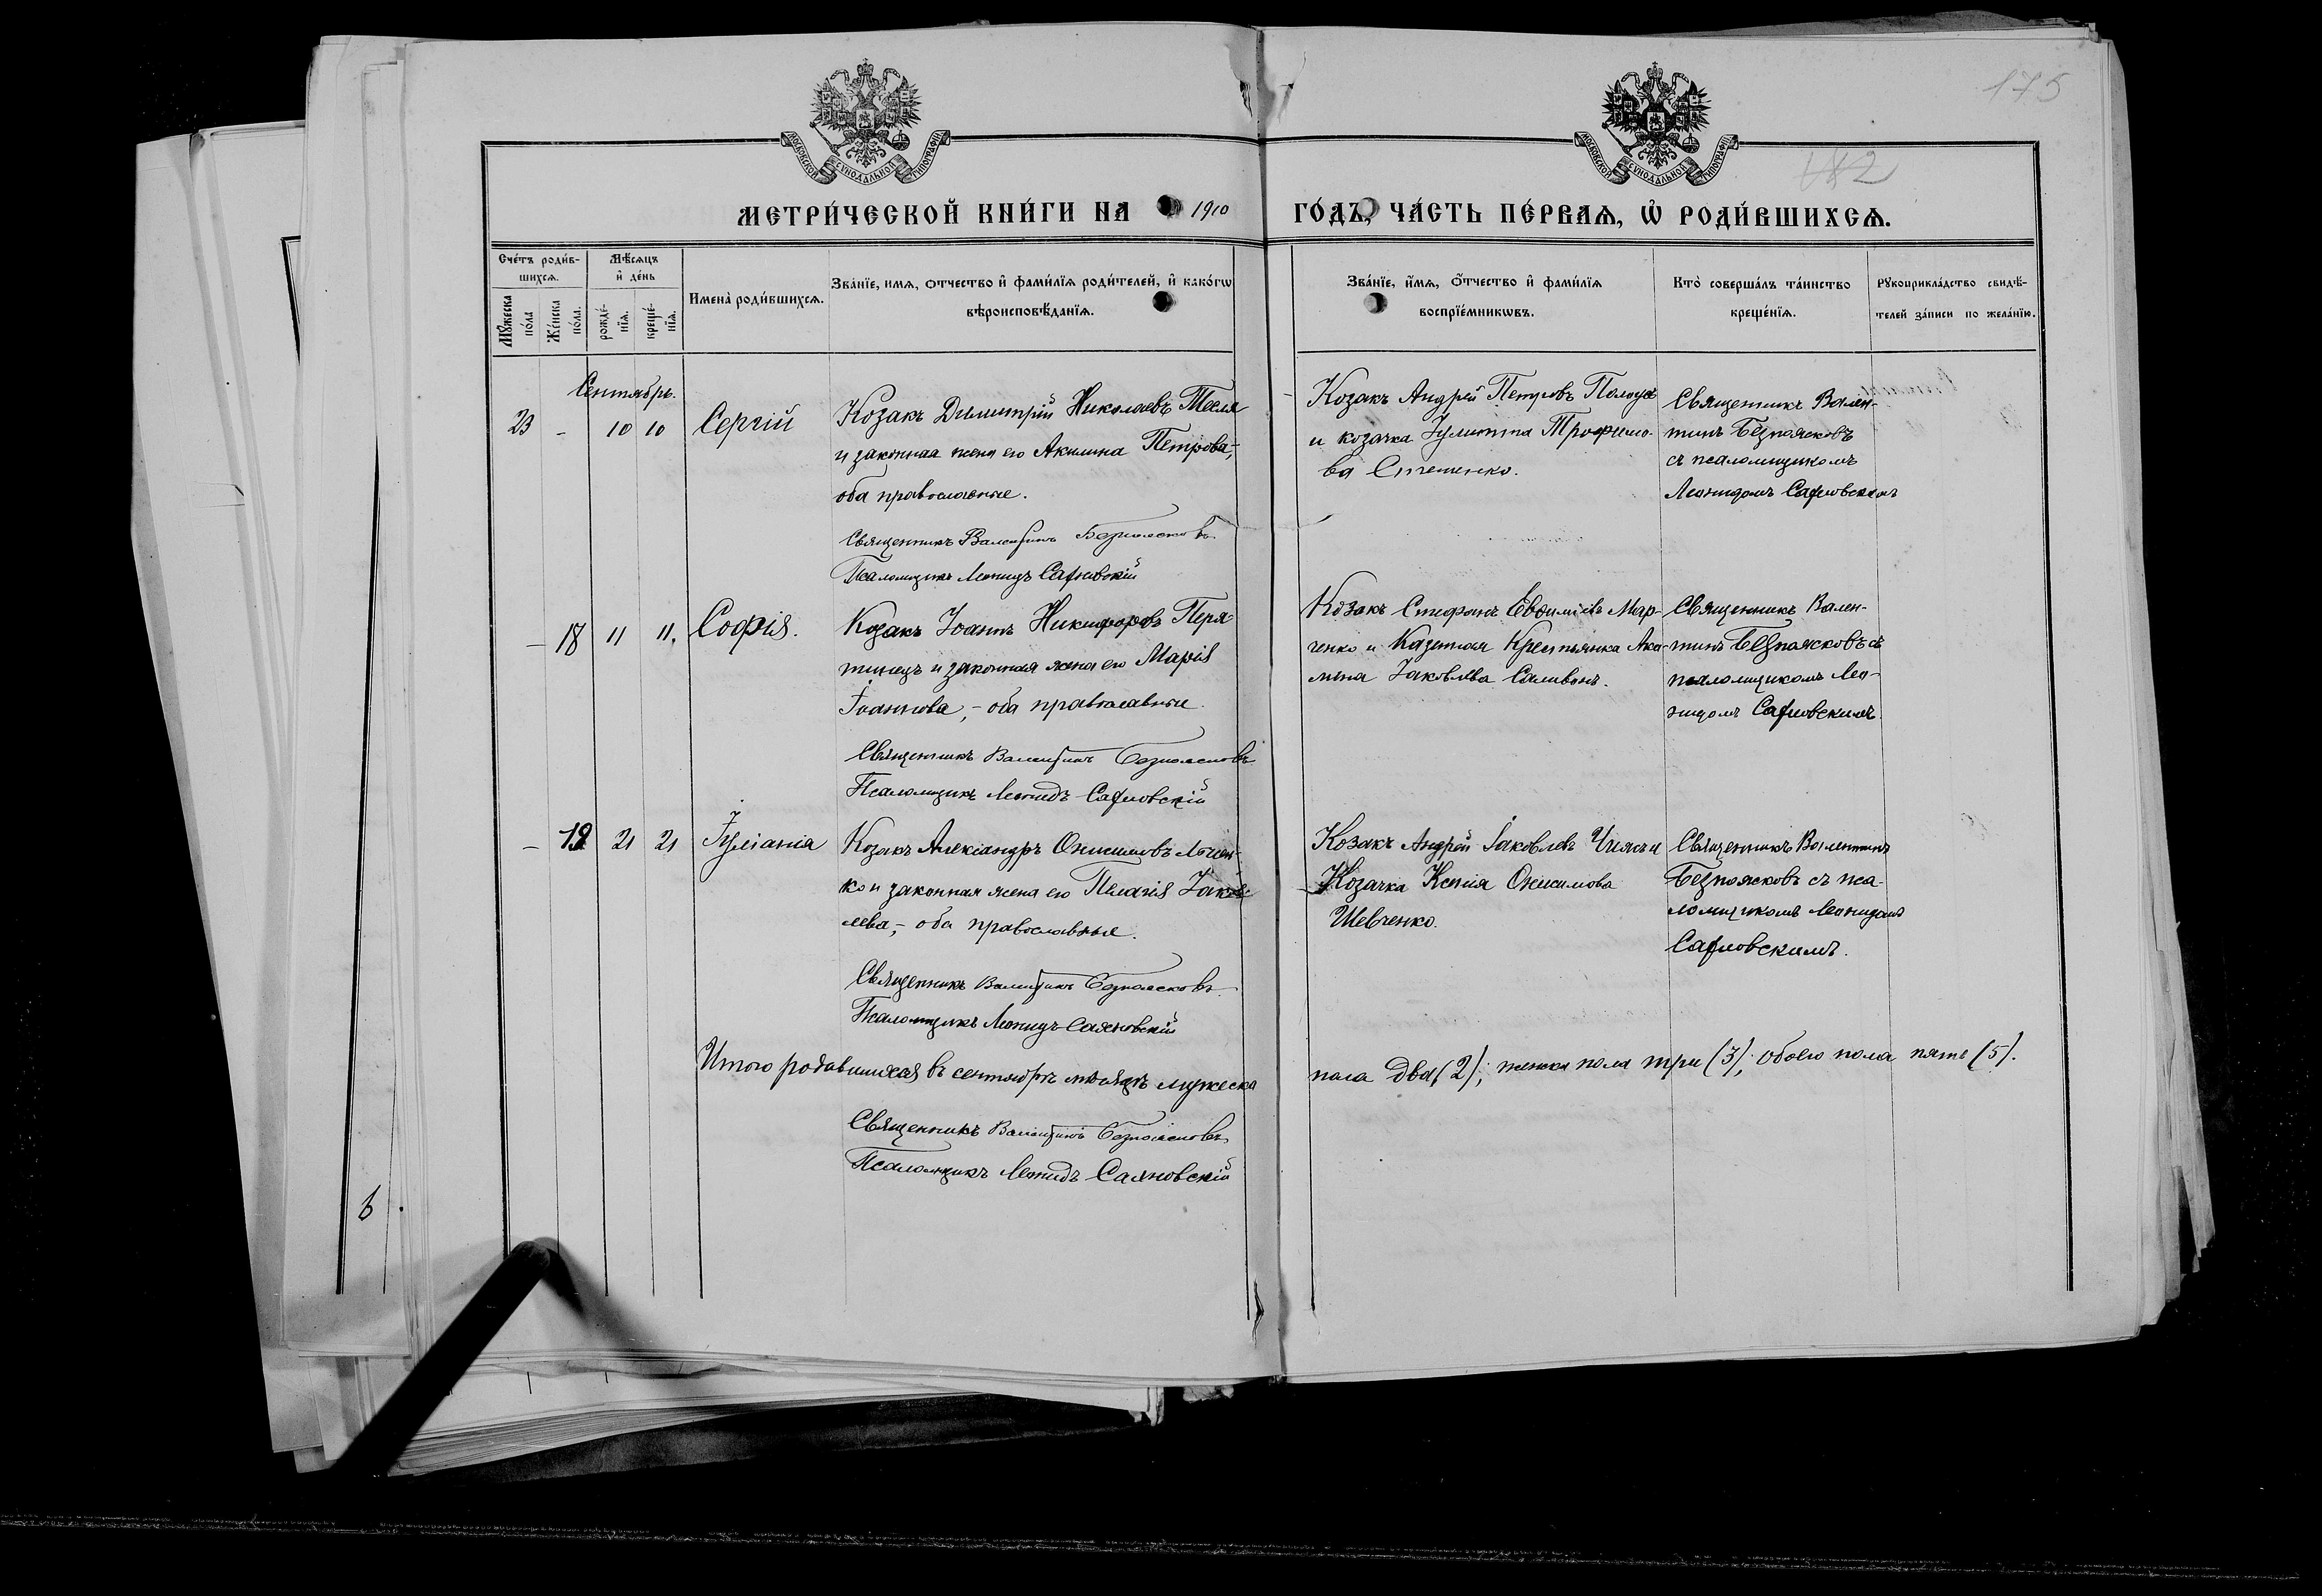 175
182
МОСКОВСКОЙ СѴНОДАЛЬНОЙ ТИПОГРАФІИ
МОСКОВСКОЙ СѴНОДАЛЬНОЙ ТИПОГРАФІИ
МЕТРИ́ЧЕСКОЙ КНИ́ГИ НА 1910 ГО́ДЪ, ЧА́СТЬ ПЕ́РВАѦ, Ѡ҆ РОДИ́ВШИХСѦ.
Сче́тъ роди́в-
шихсѧ.
Мꙋ́жеска
по́ла
Же́нска
по́ла.
Мѣ́сѧцъ
и҆ де́нь
рожде́-
нїѧ.
креще́-
нїѧ.
Имена̀ роди́вшихсѧ.
Зва́нїе, имѧ, ѻтчество и҆ фами́лїѧ роди́телей, и҆ како́гѡ
вѣроисповѣ́данїѧ.
Зва́нїе, и҆́мѧ, ѻ҆́тчество и҆ фами́лїѧ
воспрїе́мникѡвъ.
Кто̀ соверша́лъ та́инство
креще́нїѧ.
Рꙋкоприкла́дство свидѣ́-
телей за́писи по жела́нїю.
Сентябрь.
23 - 10 10 Сергій
Козакъ Димитрій Николаевъ Тесля
и законная жена его Акилина Петрова,-
оба православные.
Священникъ Валентинъ Безпоясковъ
Псаломщикъ Леонидъ Сафновскій
Козакъ Андрей Петровъ
и козачка Іулитта Трофимо-
ва Стеценко.
Священникъ Вален-
тинъ Безпоясковъ
съ псаломщикомъ
Леонидомъ Сафновскимъ
- 18 11 11. Софія.
Козакъ Іоаннъ Никифоровъ Перя-
тинецъ и законная жена его Марія
Іоаннова,- оба православные.
Священникъ Валентинъ Безпоясковъ
Псаломщикъ Леонидъ Сафновскій
Козакъ Стефанъ Евфиміевъ Мар-
ченко и Казенная Крестьянка Аки-
лина Іаковлева Саливонъ.
Священникъ Вален-
тинъ Безпоясковъ съ
псаломщикомъ Лео-
нидомъ Сафновскимъ.
- 19 21 21 Іуліанія
Козакъ Александръ Онисимовъ
ко и законная жена его Пелагія Іаков-
лева,- оба православные.
Священникъ Валентинъ Безпоясковъ
Псаломщикъ Леонидъ Сафновскій
Козакъ Андрей Іаковлевъ и
Козачка Ксенія Онисимова
Шевченко.
Священникъ Валентинъ
Безпоясковъ съ пса-
ломщикомъ Леонидомъ
Сафновскимъ.
Итого родившихся въ сентябрѣ мѣсяцѣ мужеска
пола два (2); женска пола три (3); обоего пола пять (5).
Священникъ Валентинъ Безпоясковъ
Псаломщикъ Леонидъ Сафновскій